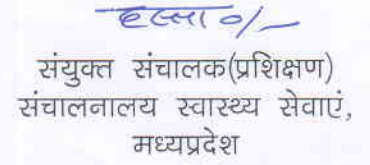 हस्ता०/—
संयुक्त संचालक(प्रशिक्षण)
संचालनालय स्वास्थ्य सेवाएं,
मध्यप्रदेश